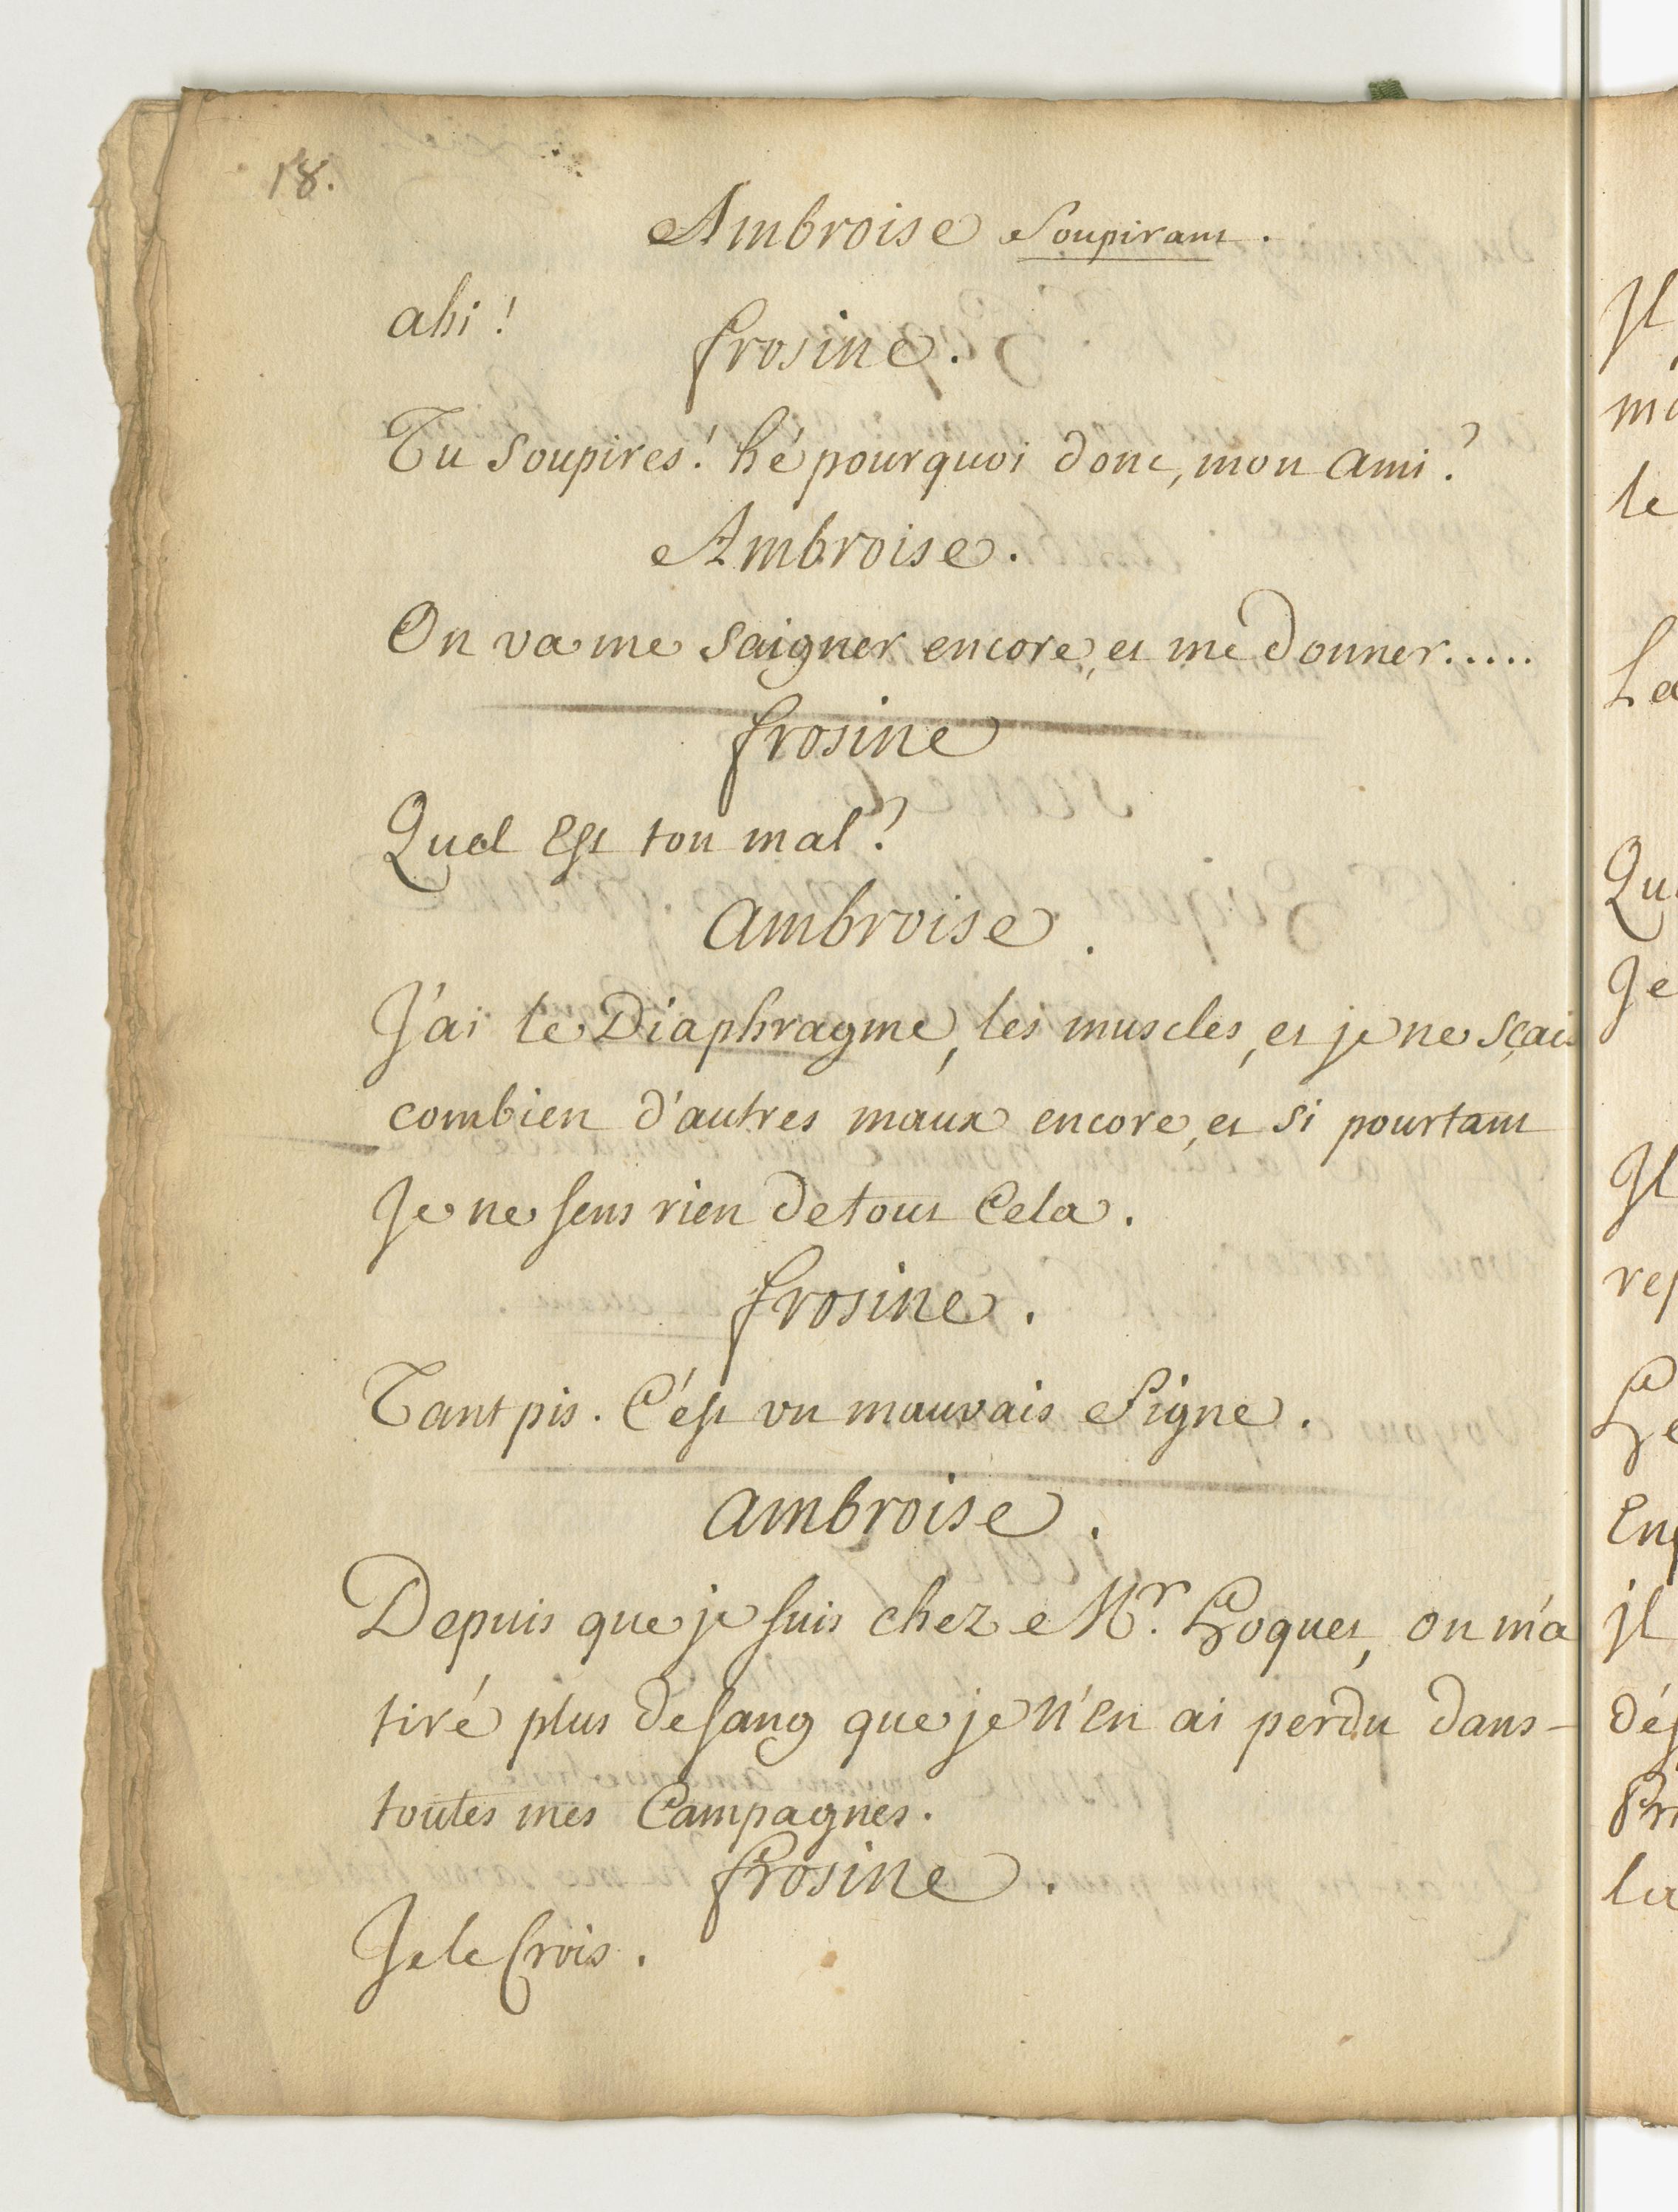 18.
Ambroise Soupirant.
ahi!
frosine.
Tu Soupires! hé pourquoi donc, mon ami?
Ambroise.
On va me Saigner encore, et me donner.....
frosine
Quel Est ton mal?
ambroise.
J'ai le Diaphragme, les muscles, et je ne sçais
combien d'autres maux encore, et si pourtant
Je ne sens rien de tout Cela.
frosine.
Tant pis. C'est un mauvais Signe.
ambroise.
Depuis que je suis chez Mr. Hoquet, on m'a
tiré plus de sang que je n'en ai perdu dans-
toutes mes Campagnes.
frosine.
Je le Crois.
Jl
le
Qu
Je
Jl
jl